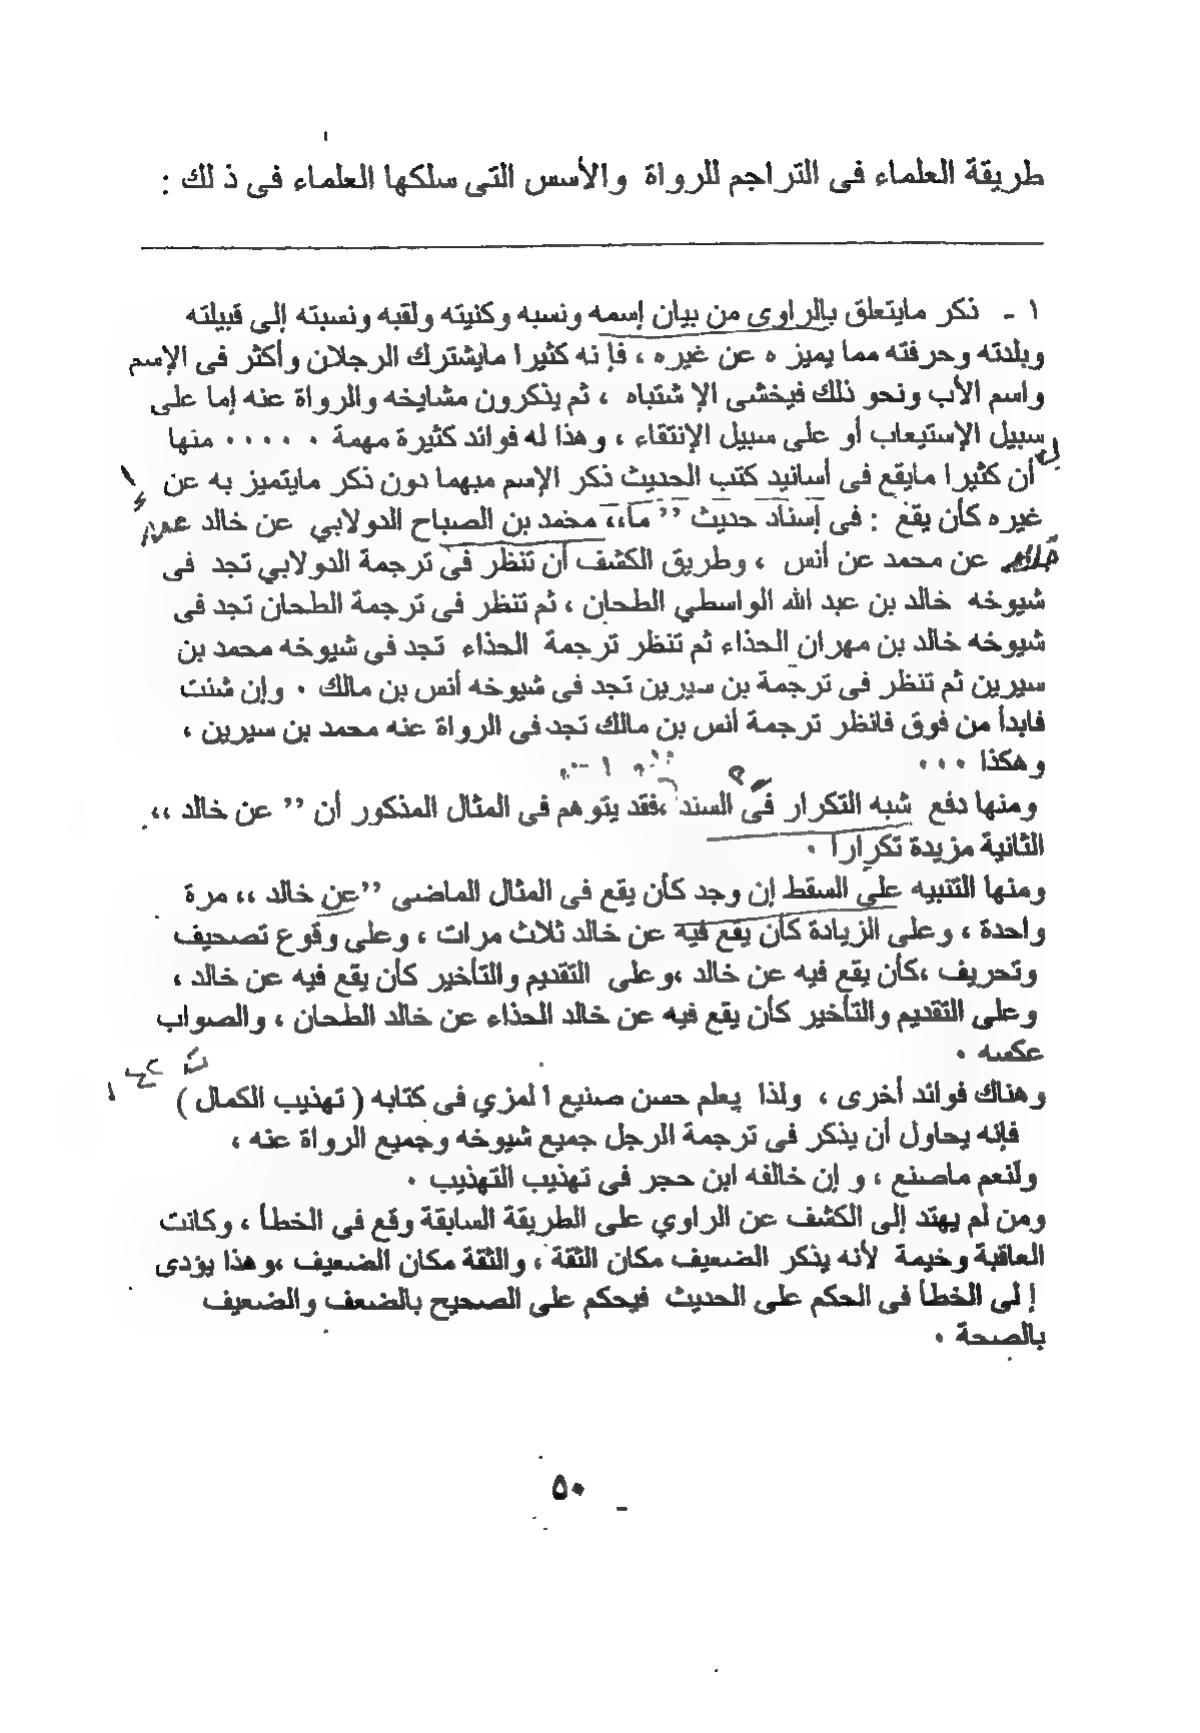 طريقة العلماء فى التراجم للرواة والأسس التى سلكها العلماء فى ذ لك :
١ - ذكر مايتعلق بالراوى من بيان إسمه ونسبه وكنيته ولقبه ونسبته إلى قبيلته
وبلدته وحرفته مما يميز ه عن غيره ، فإ نه كثيرا مايشترك الرجلان وأكثر فى الإسم
واسم الأب ونحو ذلك فيخشى الإ شتباه ، ثم يذكرون مشايخه والرواة عنه إما على
سبيل الإستيعاب أو على سبيل الإنتقاء ، وهذا له فوائد كثيرة مهمة ٠ ٠ ٠ ٠ ٠ منها
أن كثيرا مايقع فى أسانيد كتب الحديث ذكر الإسم مبهما دون ذكر مايتميز به عن
غيره كأن يقع : فى إسناد حديث ” ما،، محمد بن الصباح الدولابي عن خالد عن
عن محمد عن أنس ، وطريق الكشف أن تنظر فى ترجمة الدولابي تجد فى
شيوخه خالد بن عبد الله الواسطي الطحان ، ثم تنظر فى ترجمة الطحان تجد فى
شيوخه خالد بن مهران الحذاء ثم تنظر ترجمة الحذاء تجد فى شيوخه محمد بن
سيرين ثم تنظر فى ترجمة بن سيرين تجد فى شيوخه أنس بن مالك ٠ وإن شئت
فابدأ من فوق فانظر ترجمة أنس بن مالك تجد فى الرواة عنه محمد بن سيرين ،
وهكذا ٠٠٠
ومنها دفع شبه التكرار فى السند ،فقد يتوهم فى المثال المذكور أن ” عن خالد ،،
الثانية مزيدة تكرارا ٠
ومنها التنبيه على السقط إن وجد كأن يقع فى المثال الماضى ”عن خالد ،، مرة
واحدة ، وعلى الزيادة كأن يقع فيه عن خالد ثلاث مرات ، وعلى وقوع تصحيف
وتحريف ،كأن يقع فيه عن خالد ،وعلى التقديم والتأخير كأن يقع فيه عن خالد ،
وعلى التقديم والتأخير كأن يقع فيه عن خالد الحذاء عن خالد الطحان ، والصواب
عكسه ٠
وهناك فوائد أخرى ، ولذا يعلم حسن صنيع ا لمزي فى كتابه ( تهذيب الكمال )
فإنه يحاول أن يذكر فى ترجمة الرجل جميع شيوخه وجميع الرواة عنه ،
ولنعم ماصنع ، و إن خالفه ابن حجر فى تهذيب التهذيب ٠
ومن لم يهتد إلى الكشف عن الراوي على الطريقة السابقة وقع فى الخطأ ، وكانت
العاقبة وخيمة لأنه يذكر الضعيف مكان الثقة ، والثقة مكان الضعيف ،وهذا يؤدى
إ لى الخطأ فى الحكم على الحديث فيحكم على الصحيح بالضعف والضعيف
بالصحة ٠
٥٠